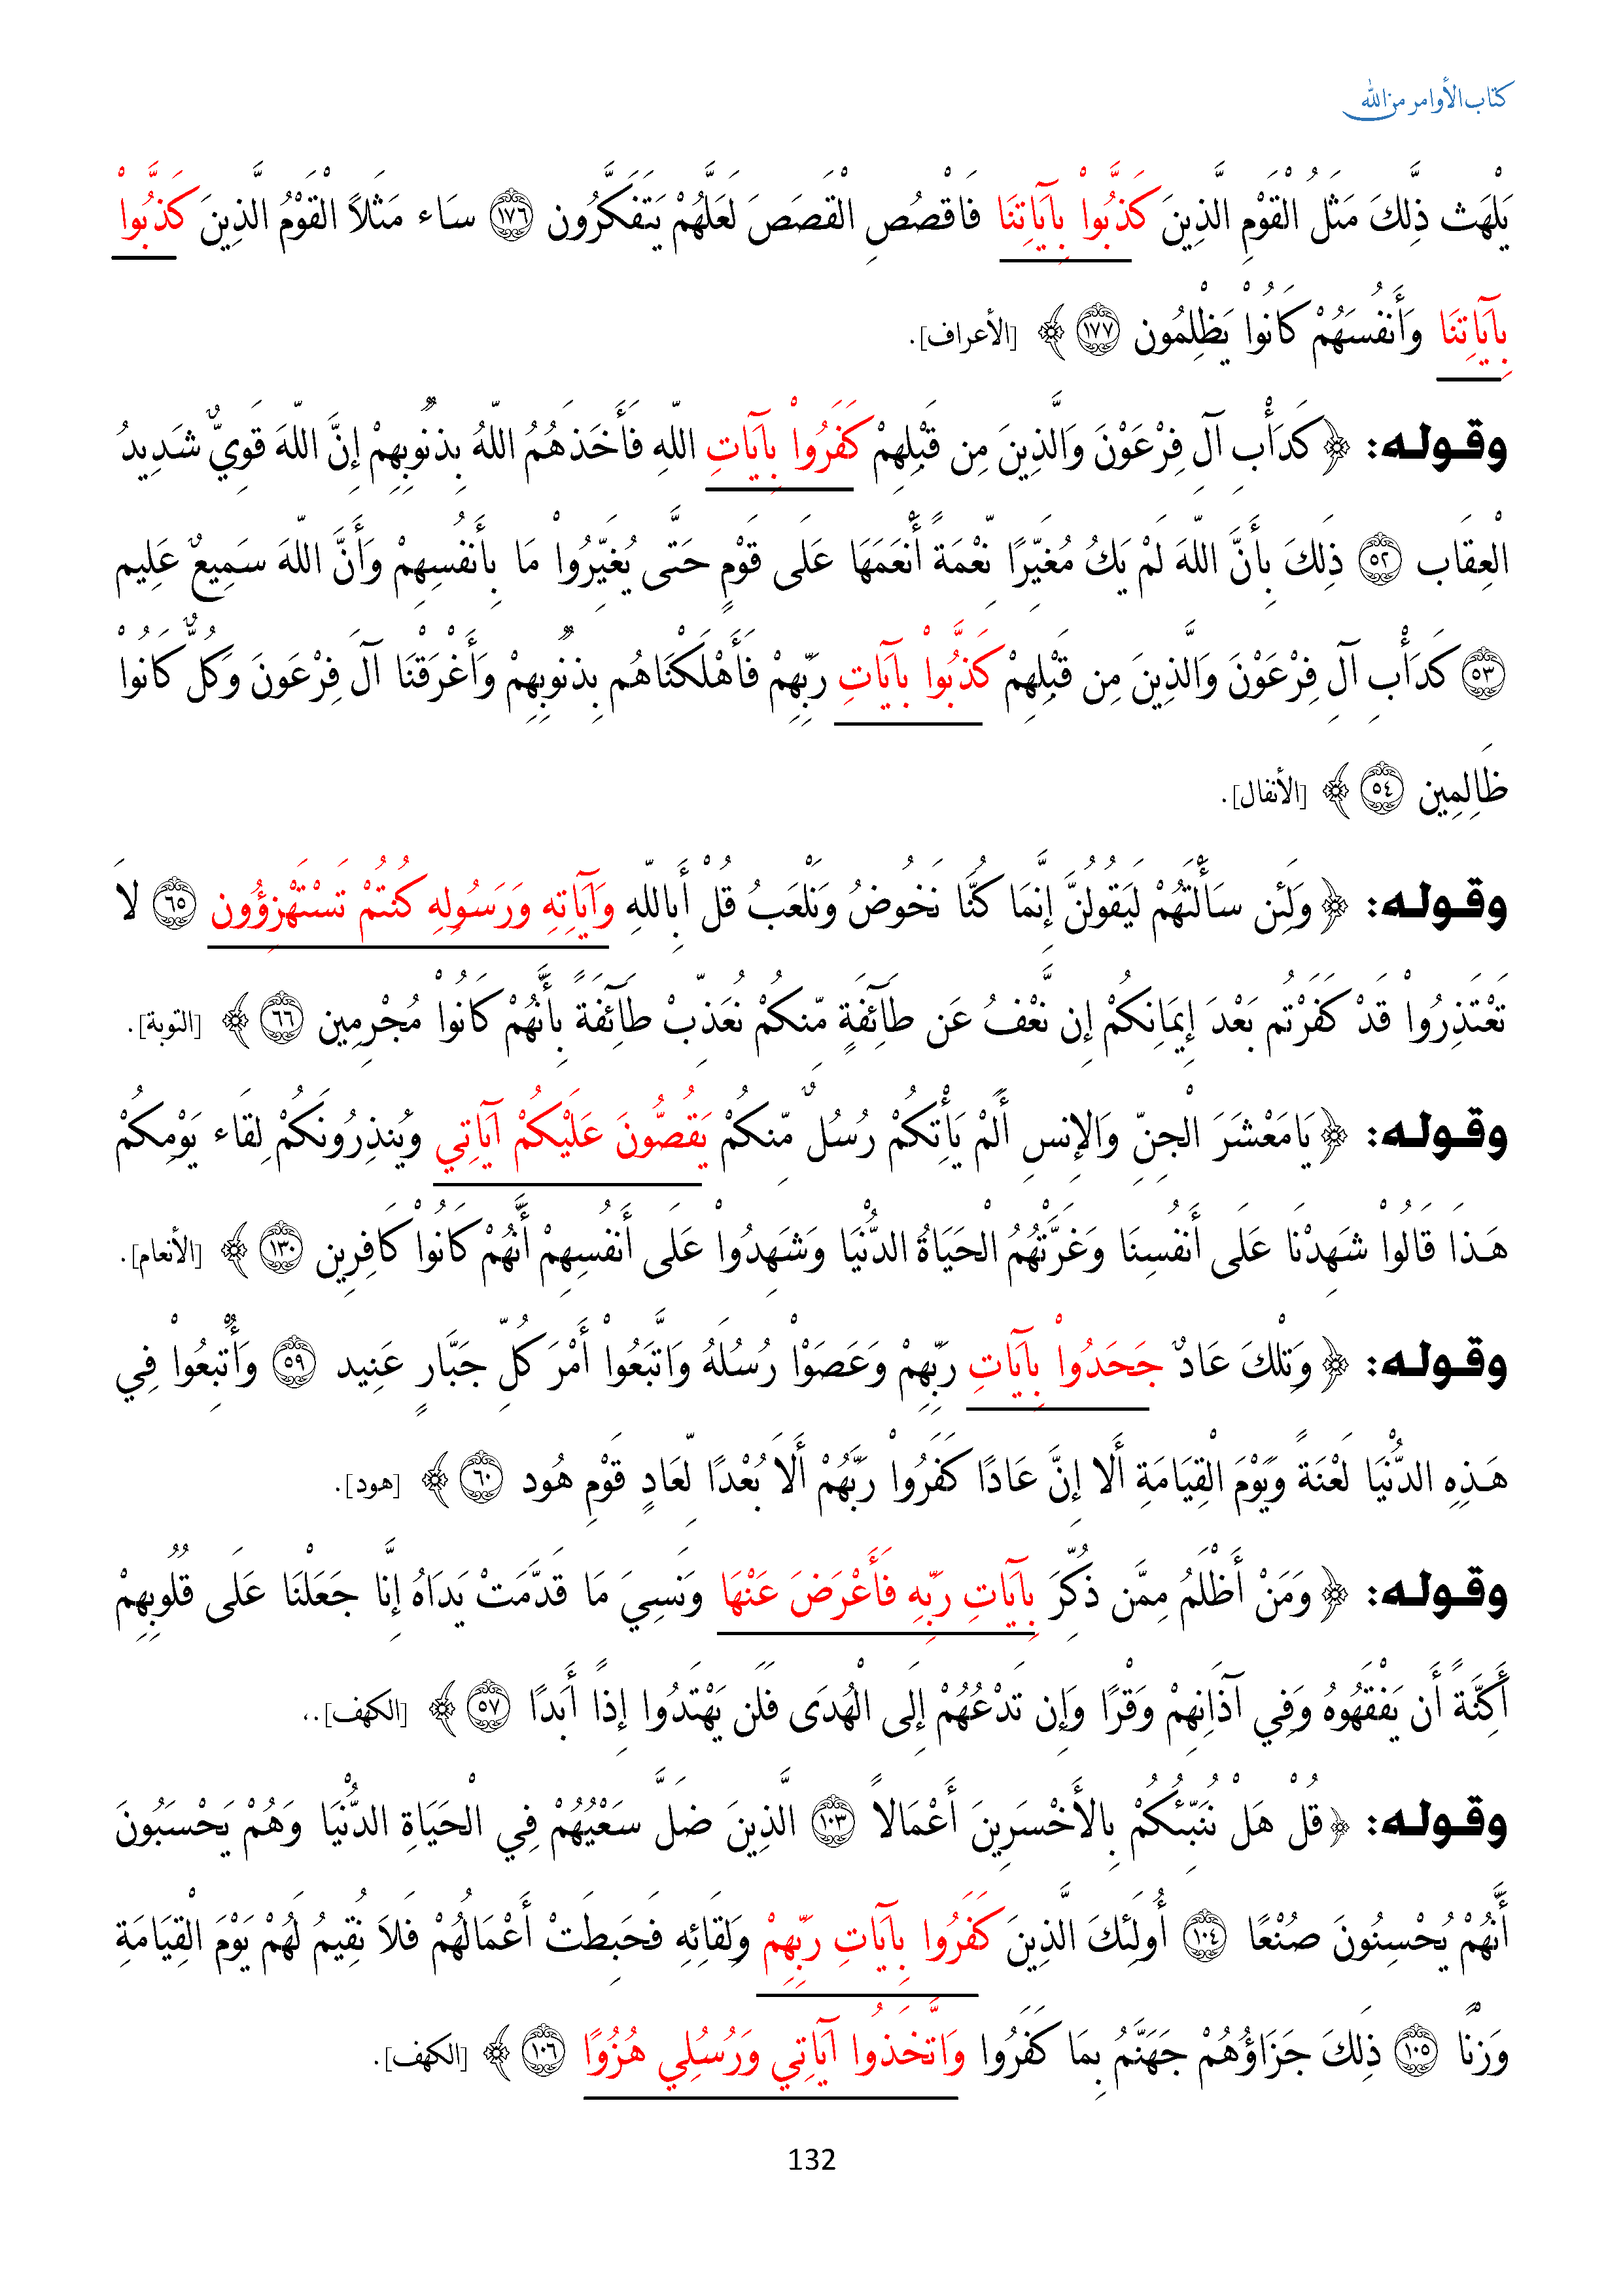 كتاب الأوامر من الله
يَلْهَث ذَّلِكَ مَثَلُ الْقَوْمِ الَّذِينَ كَذَّبُواْ بِآيَاتِنَا فَاقْصُصِ الْقَصَصَ لَعَلَّهُمْ يَتَفَكَّرُون ﴿١٧٦﴾ سَاء مَثَلاً الْقَوْمُ الَّذِينَ كَذَّبُواْ
بِآيَاتِنَا وَأَنفُسَهُمْ كَانُواْ يَظْلِمُون ﴿١٧٧﴾ ﴾ [الأعراف].
وقوله: ﴿ كَدَأْبِ آلِ فِرْعَوْنَ وَالَّذِينَ مِن قَبْلِهِمْ كَفَرُواْ بِآيَاتِ اللّهِ فَأَخَذَهُمُ اللّهُ بِذُنُوبِهِمْ إِنَّ اللّهَ قَوِيٌّ شَدِيدُ
الْعِقَاب ﴿٥٢﴾ ذَلِكَ بِأَنَّ اللّهَ لَمْ يَكُ مُغَيِّرًا نِّعْمَةً أَنْعَمَهَا عَلَى قَوْمٍ حَتَّى يُغَيِّرُواْ مَا بِأَنفُسِهِمْ وَأَنَّ اللّهَ سَمِيعٌ عَلِيم
﴿٥٣﴾ كَدَأْبِ آلِ فِرْعَوْنَ وَالَّذِينَ مِن قَبْلِهِمْ كَذَّبُواْ بِآيَاتِ رَبِّهِمْ فَأَهْلَكْنَاهُم بِذُنُوبِهِمْ وَأَغْرَقْنَا آلَ فِرْعَونَ وَكُلٌّ كَانُواْ
ظَالِمِين ﴿٥٤﴾ ﴾ [الأنفال].
وقوله: ﴿ وَلَئِن سَأَلْتَهُمْ لَيَقُولُنَّ إِنَّمَا كُنَّا نَخُوضُ وَنَلْعَبُ قُلْ أَبِاللّهِ وَآيَاتِهِ وَرَسُولِهِ كُنتُمْ تَسْتَهْزِؤُون ﴿٦٥﴾ لاَ
تَعْتَذِرُواْ قَدْ كَفَرْتُم بَعْدَ إِيمَانِكُمْ إِن نَّعْفُ عَن طَآئِفَةٍ مِّنكُمْ نُعَذِّبْ طَآئِفَةً بِأَنَّهُمْ كَانُواْ مُجْرِمِين ﴿٦٦﴾ ﴾ [التوبة].
وقوله: ﴿ يَامَعْشَرَ الْجِنِّ وَالإِنسِ أَلَمْ يَأْتِكُمْ رُسُلٌ مِّنكُمْ يَقُصُّونَ عَلَيْكُمْ آيَاتِي وَيُنذِرُونَكُمْ لِقَاء يَوْمِكُمْ
هَذَا قَالُواْ شَهِدْنَا عَلَى أَنفُسِنَا وَغَرَّتْهُمُ الْحَيَاةُ الدُّنْيَا وَشَهِدُواْ عَلَى أَنفُسِهِمْ أَنَّهُمْ كَانُواْ كَافِرِين ﴿١٣٠﴾ ﴾ [الأنعام].
وقوله: ﴿ وَتِلْكَ عَادٌ جَحَدُواْ بِآيَاتِ رَبِّهِمْ وَعَصَوْاْ رُسُلَهُ وَاتَّبَعُواْ أَمْرَ كُلِّ جَبَّارٍ عَنِيد ﴿٥٩﴾ وَأُتْبِعُواْ فِي
هَذِهِ الدُّنْيَا لَعْنَةً وَيَوْمَ الْقِيَامَةِ أَلا إِنَّ عَادًا كَفَرُواْ رَبَّهُمْ أَلاَ بُعْدًا لِّعَادٍ قَوْمِ هُود ﴿٦٠﴾ ﴾ [هود].
وقوله: ﴿ وَمَنْ أَظْلَمُ مِمَّن ذُكِّرَ بِآيَاتِ رَبِّهِ فَأَعْرَضَ عَنْهَا وَنَسِيَ مَا قَدَّمَتْ يَدَاهُ إِنَّا جَعَلْنَا عَلَى قُلُوبِهِمْ
أَكِنَّةً أَن يَفْقَهُوهُ وَفِي آذَانِهِمْ وَقْرًا وَإِن تَدْعُهُمْ إِلَى الْهُدَى فَلَن يَهْتَدُوا إِذًا أَبَدًا ﴿٥٧﴾ ﴾ [الكهف]..
وقوله: ﴿ قُلْ هَلْ نُنَبِّئُكُمْ بِالأَخْسَرِينَ أَعْمَالاً ﴿١٠٣﴾ الَّذِينَ ضَلَّ سَعْيُهُمْ فِي الْحَيَاةِ الدُّنْيَا وَهُمْ يَحْسَبُونَ
أَنَّهُمْ يُحْسِنُونَ صُنْعًا ﴿١٠٤﴾ أُولَئِكَ الَّذِينَ كَفَرُوا بِآيَاتِ رَبِّهِمْ وَلِقَائِهِ فَحَبِطَتْ أَعْمَالُهُمْ فَلاَ نُقِيمُ لَهُمْ يَوْمَ الْقِيَامَةِ
وَزْنًا ﴿١٠٥﴾ ذَلِكَ جَزَاؤُهُمْ جَهَنَّمُ بِمَا كَفَرُوا وَاتَّخَذُوا آيَاتِي وَرُسُلِي هُزُوًا ﴿١٠٦﴾ ﴾ [الكهف].
132